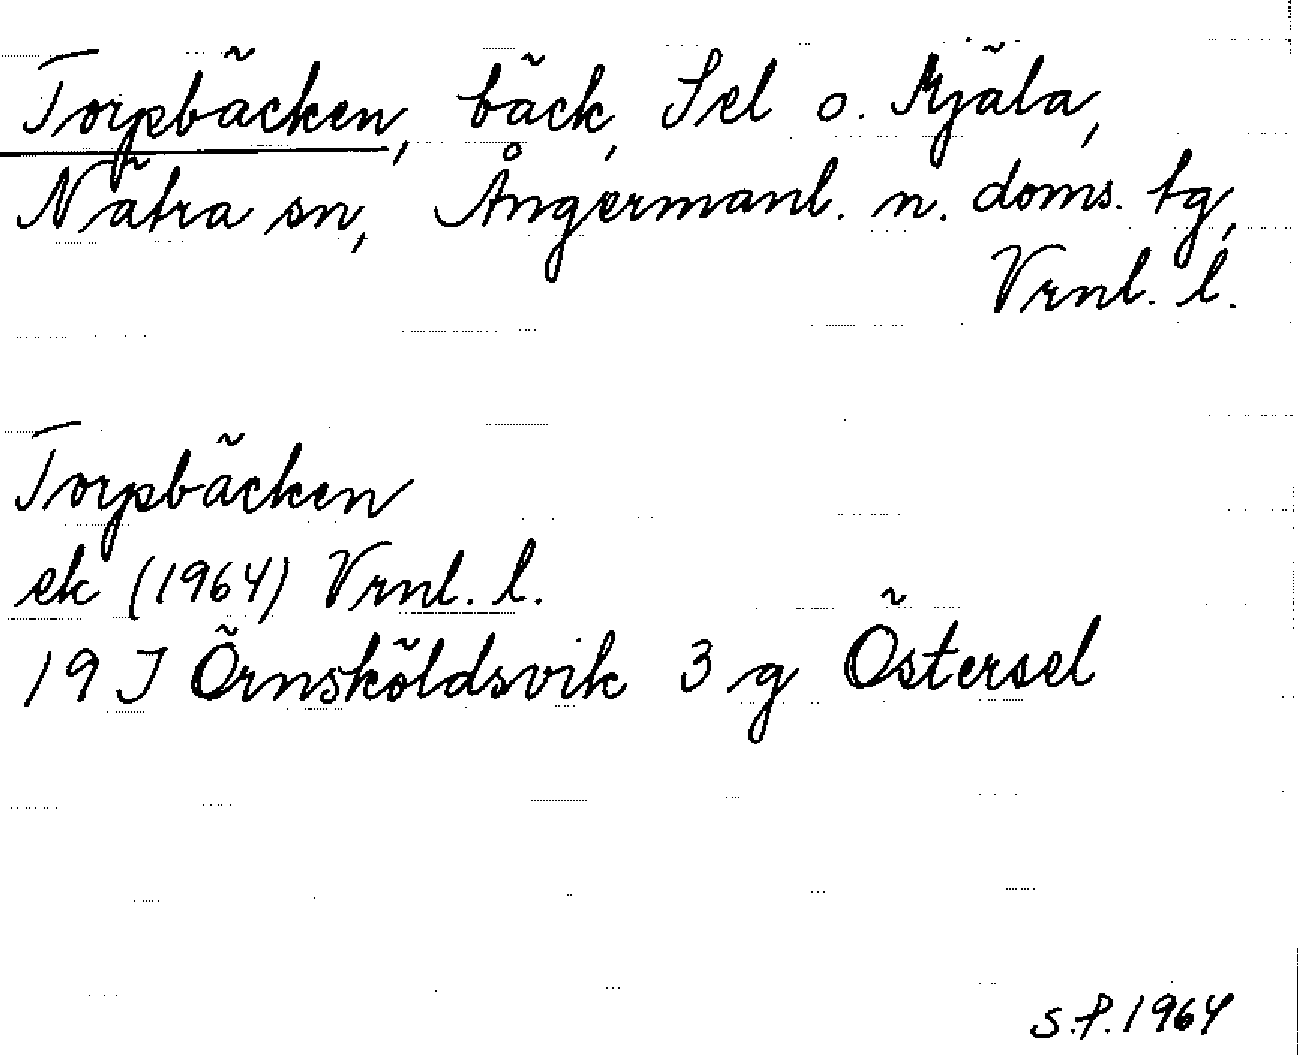 Torpbäcken, bäck, Sel o. Mjäla,
Nätra sn, Ångermanl. n. doms. tg,
Vrnl. l.
Torpbäcken
ek (1964) Vrnl. l.
19 J Örnsköldsvik 3 g Östersel
S.P. 1964